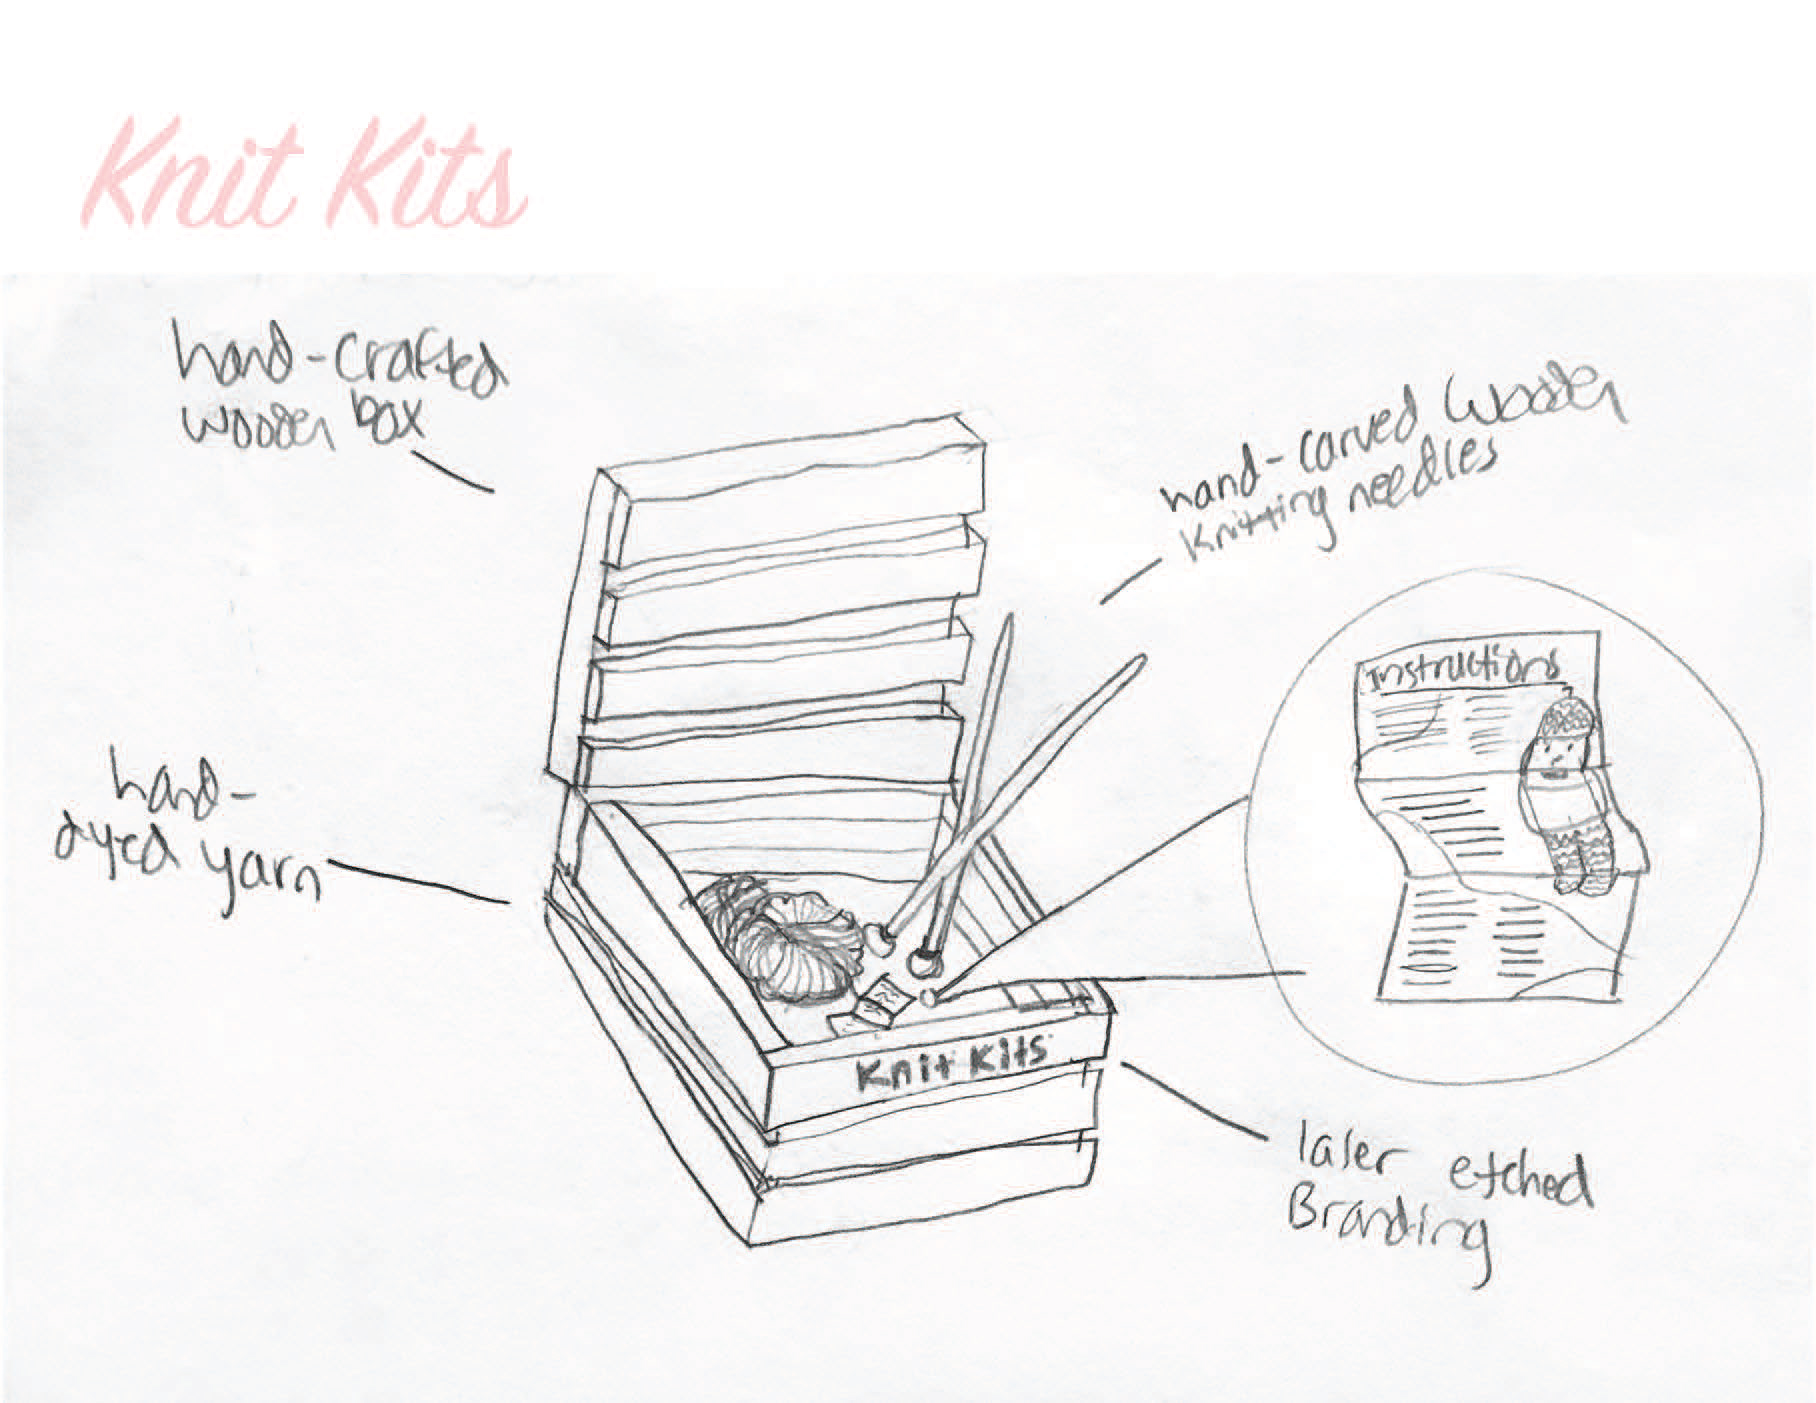 Knit Kits
hand-crafted
wooden box
hand-carved wooden
knitting needles
Instructions
hand-
dyed yarn
Knit Kits
laser etched
Branding